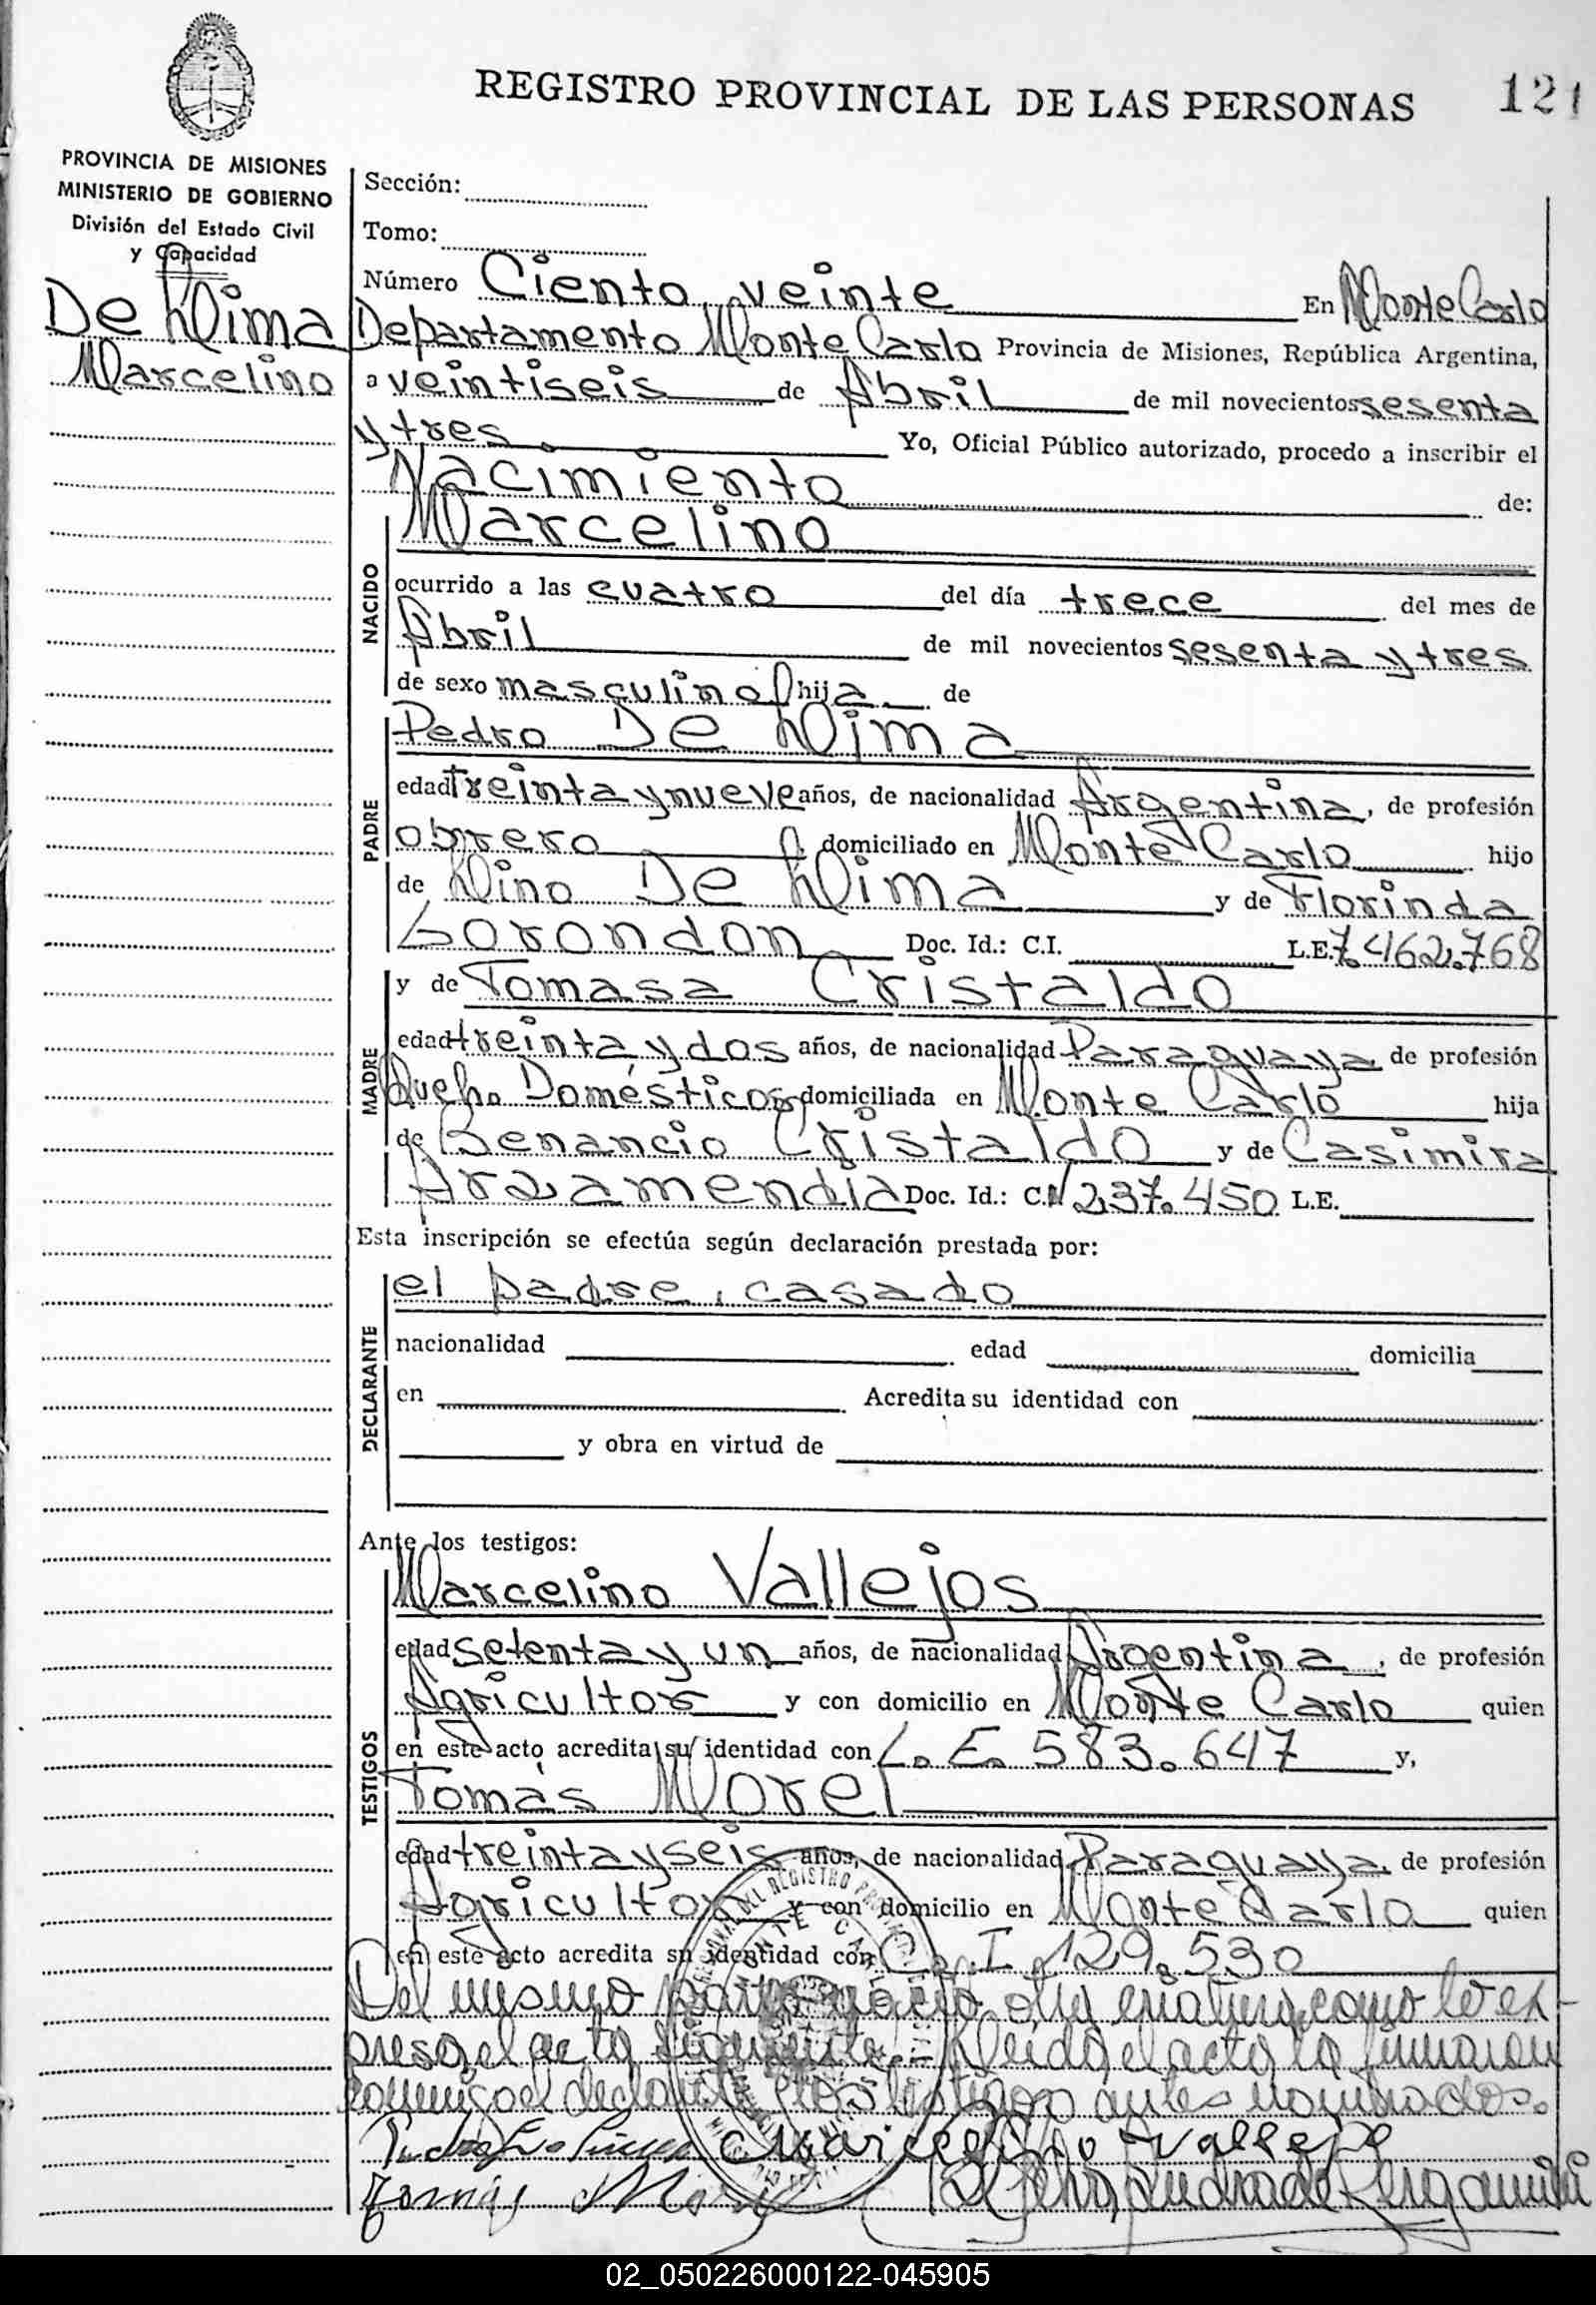 REGISTRO PROVINCIAL DE LAS PERSONAS
121
PROVINCIA DE MISIONES
MINISTERIO DE GOBIERNO
División del Estado Civil
y Capacidad
De Lima
Marcelino
Sección:
Tomo:
Número Ciento veinte En Monte Carlo
Departamento Monte Carlo Provincia de Misiones, República Argentina,
a veintiseis de Abril de mil novecientos sesenta
y tres. Yo, Oficial Público autorizado, procedo a inscribir el
Nacimiento de:
NACIDO
Marcelino
ocurrido a las cuatro del día trece del mes de
Abril de mil novecientos sesenta y tres
de sexo masculino hija de
PADRE
Pedro De Lima
edad treinta y nueve años, de nacionalidad Argentina, de profesión
obrero domiciliado en Monte Carlo hijo
de Lino De Lima y de Florinda
Lorondon Doc. Id.: C.I. L.E. 7.462.768
MADRE
y de Tomasa Cristaldo
edad treinta y dos años, de nacionalidad Paraguaya de profesión
Queh. Domésticos domiciliada en Monte Carlo hija
de Benancio Cristaldo y de Casimira
Arzamendia Doc. Id.: C.I. 237.450 L.E.
Esta inscripción se efectúa según declaración prestada por:
DECLARANTE
el padre, casado
nacionalidad edad domicilia
en Acredita su identidad con
y obra en virtud de
Ante los testigos:
TESTIGOS
Marcelino Vallejos
edad setenta y un años, de nacionalidad Argentina, de profesión
Agricultor y con domicilio en Monte Carlo quien
en este acto acredita su identidad con L. E. 583.647 y,
Tomás Morel
edad treinta y seis años, de nacionalidad Paraguaya de profesión
Agricultor y con domicilio en Monte Carlo quien
en este acto acredita su identidad con C. I. 129.530
Del mismo parto nació otra criatura como lo ex-
presa el acta siguiente. Leida el acta la firmaron
conmigo el declarante y los testigos antes nombrados.
Marcelino Vallejo
Tomás Morel
02_050226000122-045905